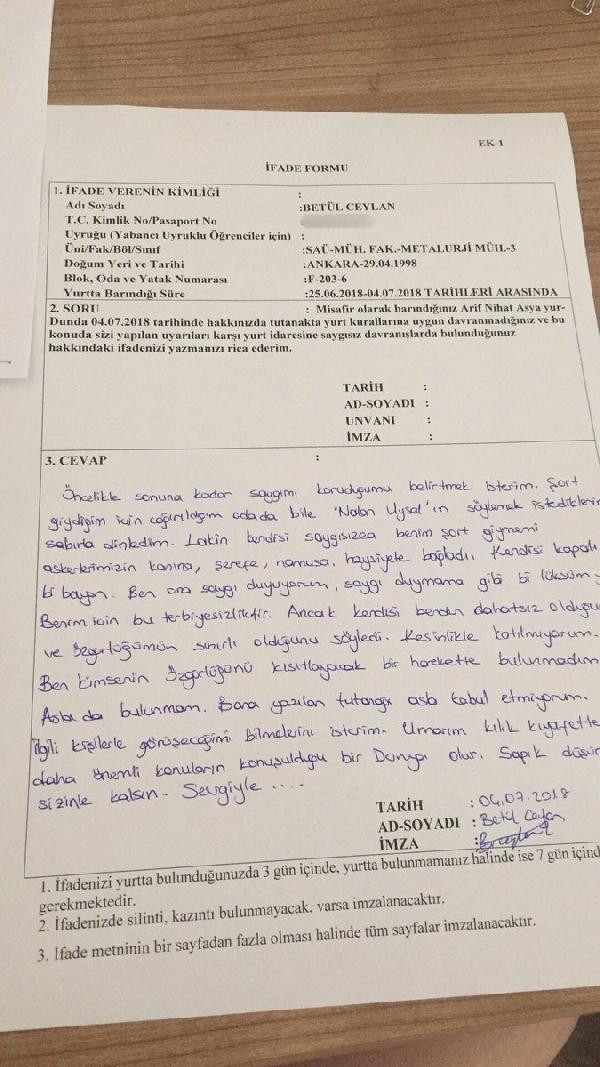 EK-1
İFADE FORMU
1. İFADE VERENİN KİMLİĞİ :
Adı Soyadı :BETÜL CEYLAN
T.C. Kimlik No/Pasaport No
Uyruğu (Yabancı Uyruklu Öğrenciler için) :
Üni/Fak/Böl/Sınıf :SAÜ-MÜH. FAK.-METALURJİ MÜH.-3
Doğum Yeri ve Tarihi :ANKARA-29.04.1998
Blok, Oda ve Yatak Numarası :F-203-6
Yurtta Barındığı Süre :25.06.2018-04.07.2018 TARİHLERİ ARASINDA
2. SORU : Misafir olarak barındığınız Arif Nihat Asya yur-
Dunda 04.07.2018 tarihinde hakkınızda tutanakta yurt kurallarına uygun davranmadığınız ve bu
konuda sizi yapılan uyarıları karşı yurt idaresine saygısız davranışlarda bulunduğunuz
hakkındaki ifadenizi yazmanızı rica ederim.
TARİH :
AD-SOYADI :
UNVANI :
İMZA :
3. CEVAP :
Öncelikle sonuna kadar saygımı koruduğumu belirtmek isterim. Şort
giydiğim için çağırıldığım odada bile 'Nalan Uysal'ın söylemek istediklerin
sabırla dinledim. Lakin kendisi saygısızca benim şort giymemi
askerlerimizin kanına, şerefe, namusa, haysiyete bağladı. Kendisi kapalı
bi bayan. Ben ona saygı duyuyorum, saygı duymama gibi bi lüksüm
Benim için bu terbiyesizliktir. Ancak kendisi benden rahatsız olduğu
ve özgürlüğümün sınırlı olduğunu söyledi. Kesinlikle katılmıyorum.
Ben kimsenin özgürlüğünü kısıtlayacak bir harekette bulunmadım
Asla da bulunmam. Bana yazılan tutanağı asla kabul etmiyorum.
İlgili kişilerle görüşeceğimi bilmelerini isterim. Umarım kılık kıyafette
daha önemli konuların konuşulduğu bir Dünya olur. Sapık düşün
sizinle kalsın. Sevgiyle ....
TARİH : 04.07.2018
AD-SOYADI : Betül Ceylan
İMZA :
1. İfadenizi yurtta bulunduğunuzda 3 gün içinde, yurtta bulunmamanız halinde ise 7 gün içind
gerekmektedir.
2. İfadenizde silinti, kazıntı bulunmayacak, varsa imzalanacaktır.
3. İfade metninin bir sayfadan fazla olması halinde tüm sayfalar imzalanacaktır.